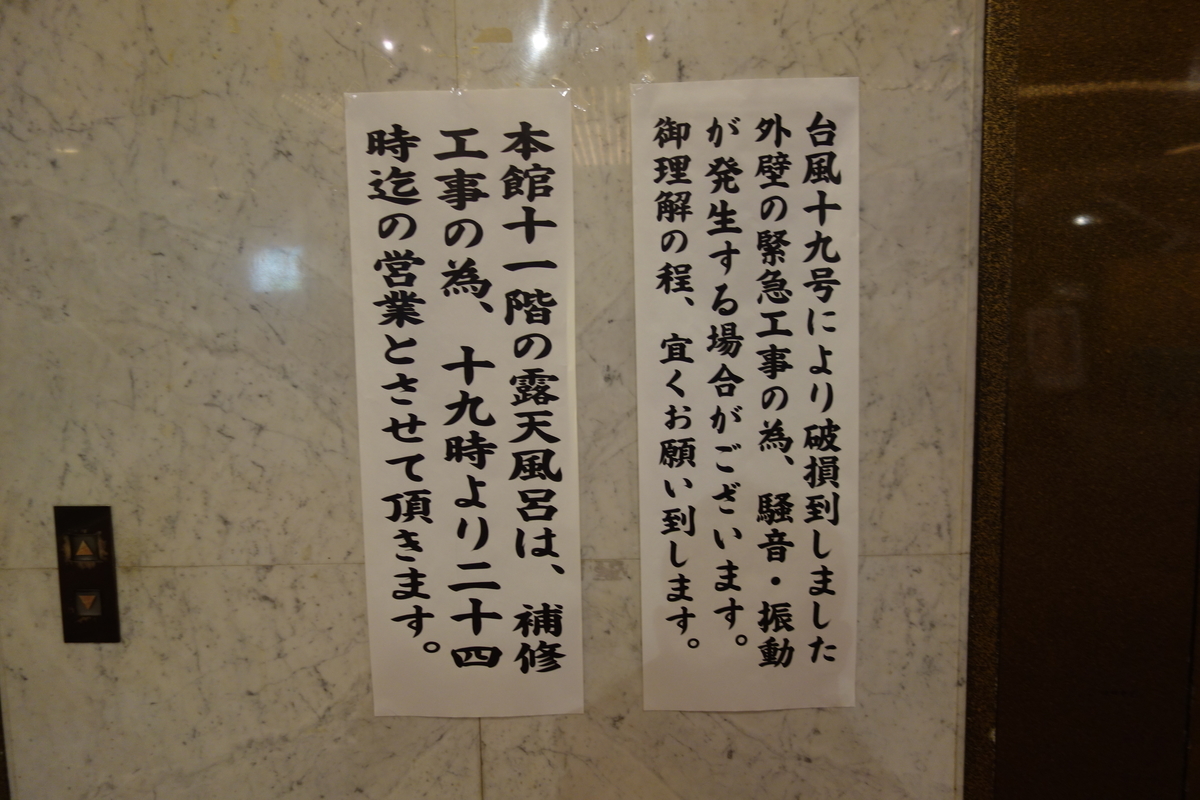 台風十九号により破損到しました
外壁の緊急工事の為、騒音・振動
が発生する場合がございます。
御理解の程、宜くお願い到します。
本館十一階の露天風呂は、補修
工事の為、十九時より二十四
時迄の営業とさせて頂きます。